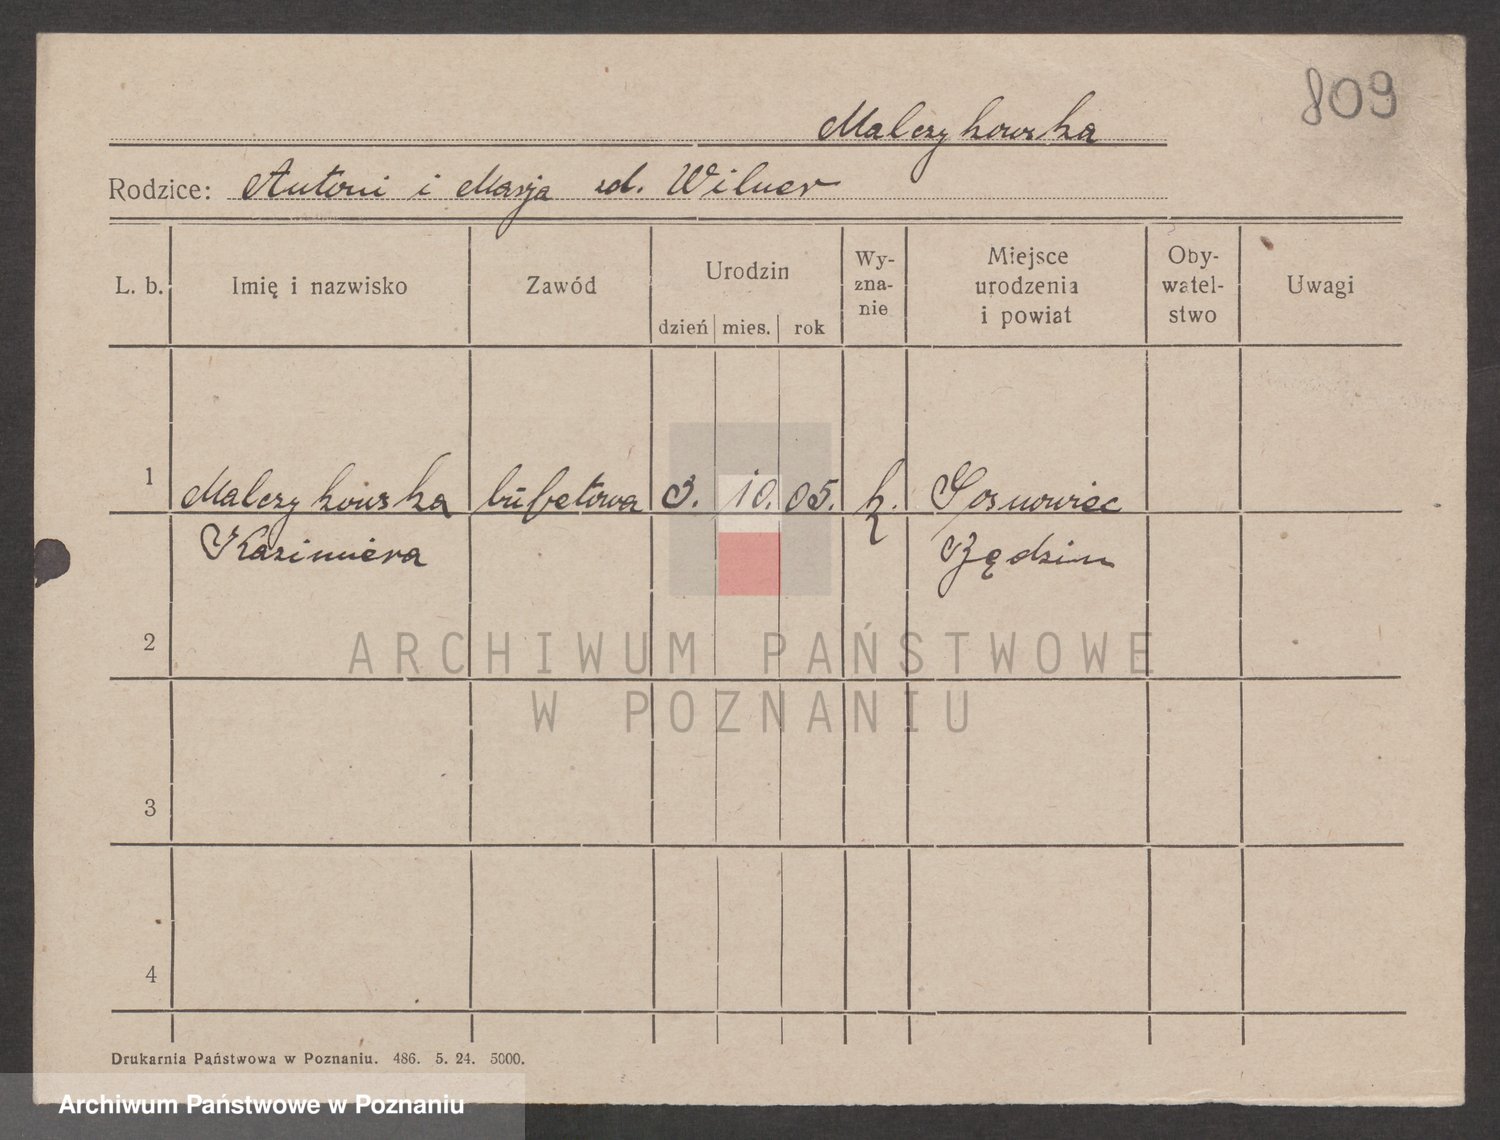 809
Malczykowska
Rodzice: Antoni i Marja zd. Wilner
L. b. Imię i nazwisko Zawód Urodzin dzień mies. rok Wy-zna-nie Miejsce urodzenia i powiat Oby-watel-stwo Uwagi
1 Malczykowska bufetowa 3. 10. 05. k. Sosnowiec
Kazimiera Będzin
2
ARCHIWUM PAŃSTWOWE
W POZNANIU
3
4
Drukarnia Państwowa w Poznaniu. 486. 5. 24. 5000.
Archiwum Państwowe w Poznaniu